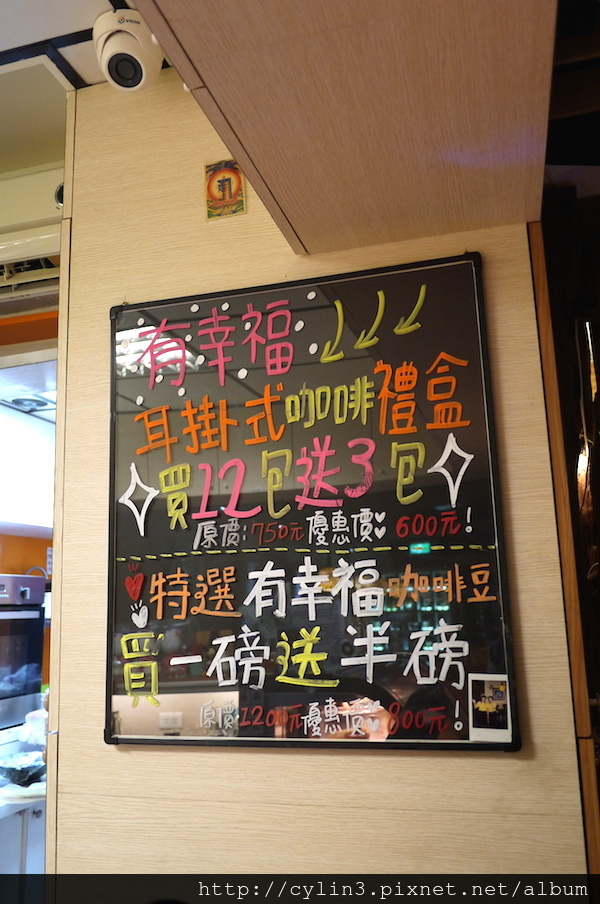 有幸福
耳掛式咖啡禮盒
買12包送3包
原價:750元優惠價600元!
特選有幸福咖啡豆
買一磅送半磅
原價:1200元優惠價800元!
http://cylin3.pixnet.net/album